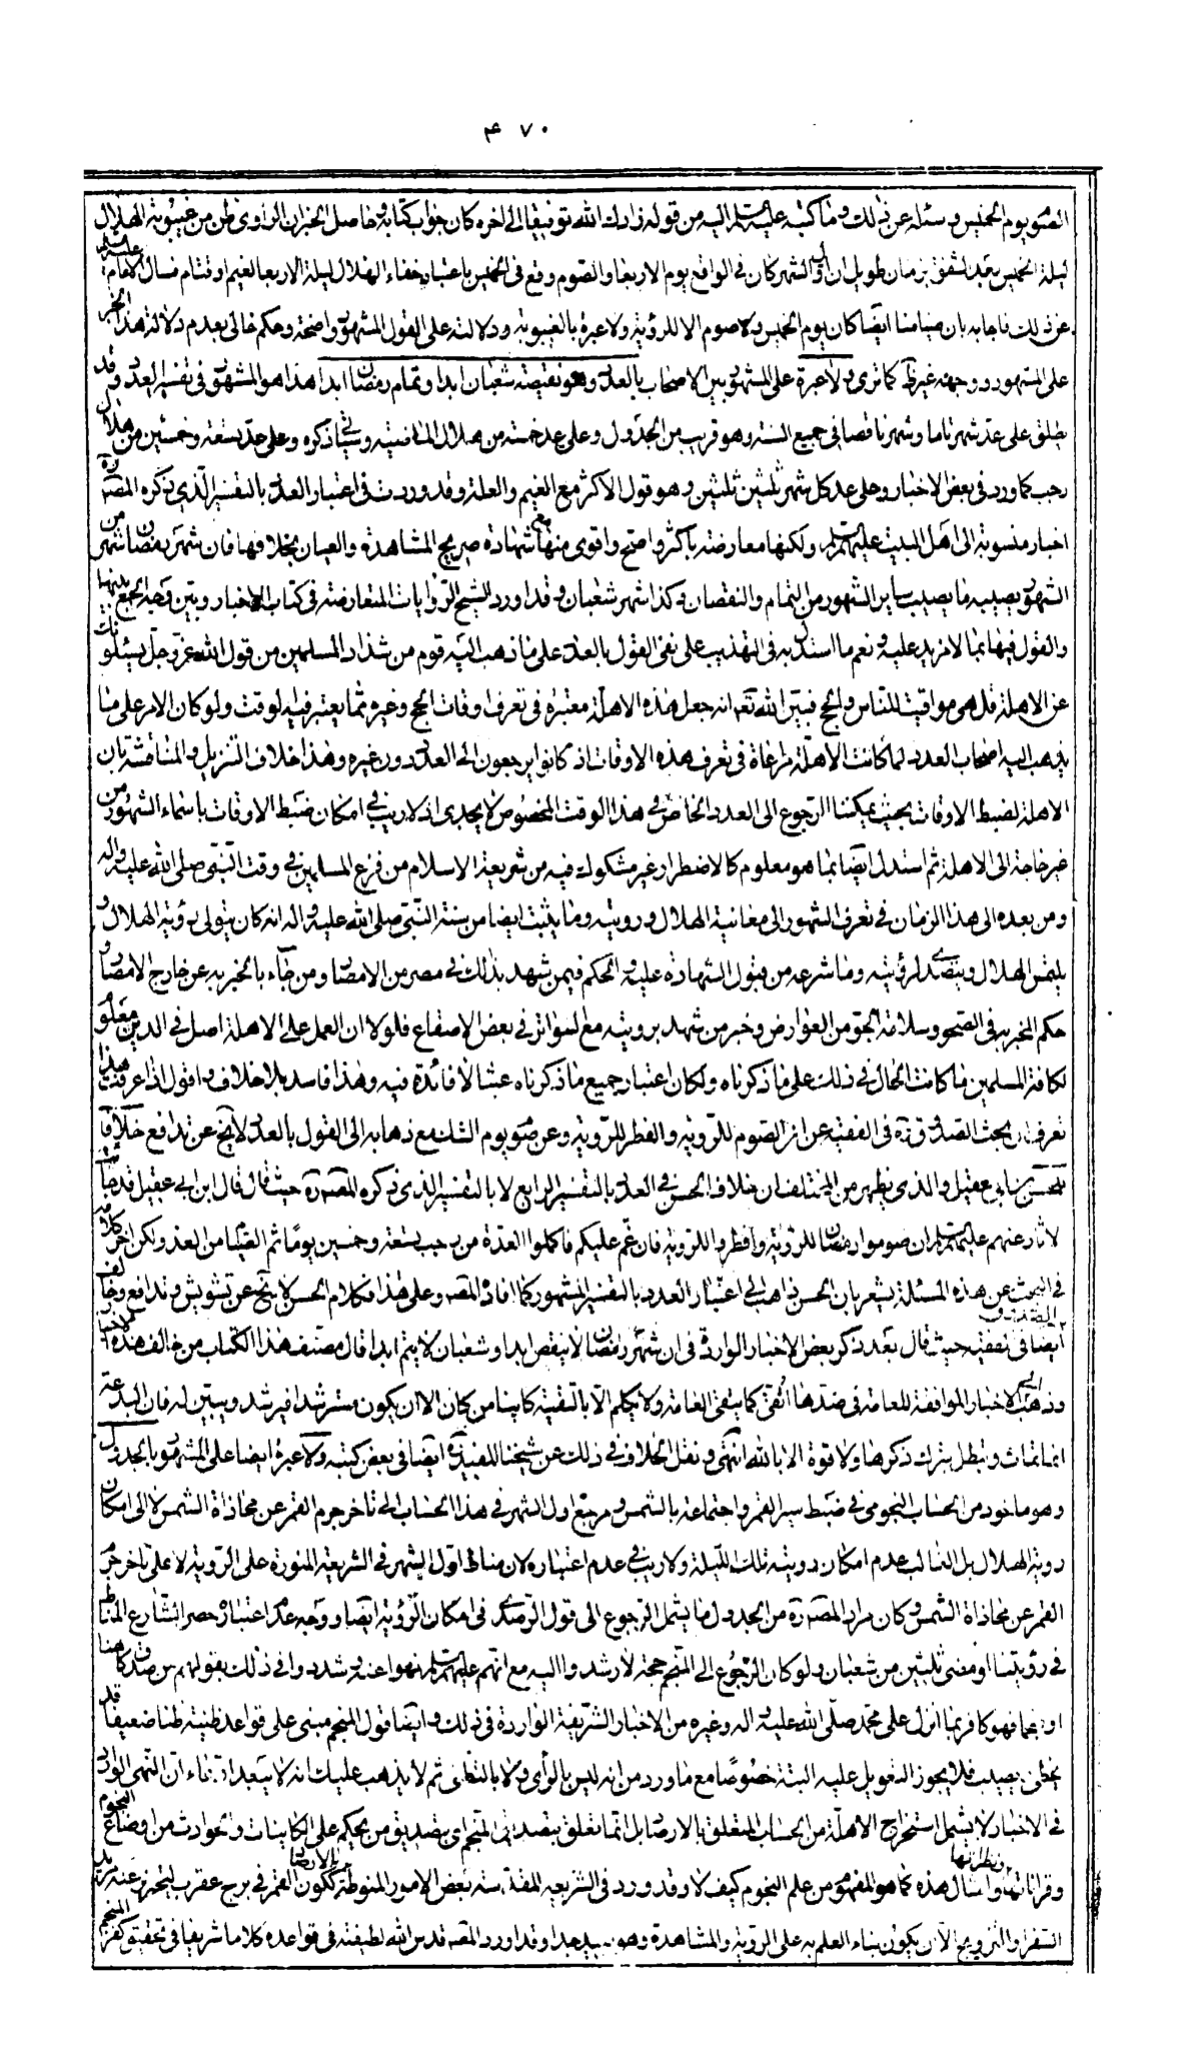 ۴۷۰
الصوم يوم الخميس وسئله عن ذلك وما كتبه عليه السلم اليه من قوله زادك الله توفيقا الى اخره كان جواب كتابه وحاصل الخبر ان الراوى ظن من غيبوبة الهلال
ليلة الخميس بعد الشفق بزمان طويل ان اول الشهر كان في الواقع يوم الاربعا والصوم وقع في الخميس باعتبار خفاء الهلال ليلة الاربعا لغيم او قتام فسال الامام عليه السلم
عن ذلك فاجابه بان صيامنا ايضا كان يوم الخميس ولا صوم الا للرؤية ولا عبرة بالغيبوبة ودلالته على القول المشهور واضحة وحكم خالى بعدم دلالة هذا الخبر
على المشهور ووجهه غير ظ كما ترى ولا عبرة على المشهور بين الاصحاب بالعدد وهو نقيصة شعبان ابدا وتمام رمضان ابدا هذا هو المشهور في تفسير العدد وقد
يطلق على عد شهر تاما وشهر ناقصا في جميع السنة وهو قريب من الجدول وعلى عد خمسة من هلال الماضية وسياتي ذكره وعلى عد تسعة وخمسين من هلال
رجب كما ورد في بعض الاخبار وعلى عد كل شهر ثلثين ثلثين وهو قول الاكثر مع الغيم والعلة وقد وردت في اعتبار العدد بالتفسير الذي ذكره المصره
اخبار منسوبة الى اهل البيت عليهم السلم ولكنها معارضة باكثر واصح واقوى منها مع شهادة صريح المشاهدة والعيان بخلافها فان شهر رمضان من شهر
الشهور يصيبه ما يصيب ساير الشهور من التمام والنقصان وكذا شهر شعبان وقد اورد الشيخ الروايات المتعارضة في كتاب الاخبار وبين وجه الجمع بينها
والقول فيها بما لا مزيد عليه ونعم ما استدل به في التهذيب على نفى القول بالعدد على ما ذهب اليه قوم من شذاذ المسلمين من قول الله عز وجل يسئلونك
عن الاهلة قل هي مواقيت للناس والحج فبين الله تعه انه جعل هذه الاهلة معتبرة في تعرف اوقات الحج وغيره مما يعتبر فيه الوقت ولو كان الامر على ما
يذهب اليه اصحاب العدد لما كانت الاهلة مراعاة في تعرف هذه الاوقات اذ كانوا يرجعون الى العدد دون غيره وهذا خلاف التنزيل والمناقشة بان
الاهلة لضبط الاوقات بحيث يمكننا الرجوع الى العدد الخاص في هذا الوقت المخصوص لا يجدى اذ لا ريب في امكان ضبط الاوقات باسماء الشهور من
غير حاجة الى الاهلة ثم استدل ايضا بما هو معلوم كالاضطرار غير مشكوك فيه من شريعة الاسلام من فزع المسلمين في وقت النبي صلى الله عليه واله
ومن بعده الى هذا الزمان في تعرف الشهور الى معاينة الهلال ورويته وما يثبت ايضا من سنة النبي صلى الله عليه واله انه كان يتولى رؤية الهلال و
يلتمس الهلال ويتصدى لرؤيته وما شرعه من قبول الشهادة عليه والحكم فيمن شهد بذلك في مصر من الامصار ومن جاء بالخبر به عن خارج الامصار و
حكم المخبر به في الصحو وسلامة الجو من العوارض وخبر من شهد برويته مع السواتر في بعض الاصقاع فلولا ان العمل على الاهلة اصل في الدين معلوم
لكافة المسلمين ما كانت الحال في ذلك على ما ذكرناه ولكان اعتبار جميع ما ذكرناه عبثا لا فائدة فيه وهذا فاسد بلا خلاف واقول اذا عرفت هذا
تعرف ان بحث الصدوق ره في الفقيه عن ان الصوم للروية والفطر للروية وعن صوم يوم الشك مع ذهابه الى القول بالعدد لا يخ عن تدافع خلافا
للحسن بن ابي عقيل والذي يظهر من المختلف ان خلاف الحسن في العدد بالتفسير الرابع لا بالتفسير الذي ذكره المصره حيث قال قال ابن ابي عقيل قد جاءت
الاثار عنهم عليهم السلم ان صوموا رمضان للرؤية وافطروا للروية فان غم عليكم فاكملوا العدة من رجب تسعة وخمسين يوما ثم الصيام من الغد ولكن اخر كلامه
في البحث عن هذه المسئلة يشعر بان الحسن ذاهب الى اعتبار العدد بالتفسير المشهور كما افاد المصه وعلى هذا فكلام الحسن لا يخ عن تشويش وتدافع وخالف الصدوق
ايضا في الفقيه حيث قال بعد ذكر بعض الاخبار الواردة في ان شهر رمضان لا ينقص ابدا وشعبان لا يتم ابدا قال مصنف هذا الكتاب من خالف هذه الاخبار
وذهب الى الاخبار الموافقة للعامة في ضدها اتقى كما يتقى العامة ولا يكلم الا بالتقية كاينا من كان الا ان يكون مسترشدا فيرشد ويبين له فان البدعة
انما تمات وتبطل بترك ذكرها ولا قوة الا بالله انتهى ونقل الخلاف في ذلك عن شيخنا المفيد ره ايضا في بعض كتبه ولا عبرة ايضا على المشهور بالجدول
وهو ماخوذ من الحساب النجومى في ضبط سير القمر واجتماعه بالشمس ومرجع اول الشهر في هذا الحساب الى تاخر جرم القمر عن محاذاة الشمس لا الى امكان
روية الهلال بل الغالب عدم امكان رويته تلك الليلة ولا ريب في عدم اعتباره لان مناط اول الشهر في الشريعة المنورة على الروية لا على تاخر جرم
القمر عن محاذاة الشمس وكان مراد المصره من الجدول ما يشمل الرجوع الى قول الرصدى في امكان الرؤية ايضا ووجه عدم اعتباره حصر الشارع المناط
في رؤيتنا او مضى ثلثين من شعبان ولو كان الرجوع الى المنجم حجة لارشدوا اليه مع انهم عليهم السلم نهوا عنه وشددوا في ذلك بقولهم من صدق كاهنا
او منجما فهو كافر بما انزل على محمد صلى الله عليه واله وغيره من الاخبار الشريفة الواردة في ذلك وايضا قول المنجم مبنى على قواعد ظنية ظنا ضعيفا قد
يخطى ويصيب فلا يجوز التعويل عليه البتة خصوصا مع ما ورد من انه ليس بالراى ولا بالتظنى ثم لا يذهب عليك انه لا يبعد ادعاء ان النهى الوارد
في الاخبار لا يشمل استخراج الاهلة من الحساب المتعلق بالارصاد بل انما تعلق بتصديق المنجم اي بتصديق من يحكم على الكاينات والحوادث من اوضاع النجوم
وقراناتها ونظراتها وامثال هذه كما هو المفهوم من علم النجوم كيف لا وقد ورد في الشريعة المقدسة بعض الامور المنوطة بالارصاد ككون القمر في برج عقرب ليحترز عنه مريد
السفر او التزويج الا ان يكون بناء العلم به على الروية والمشاهدة وهو بعيد جدا وقد اورد المصه قدس الله لطيفته في قواعده كلاما شريفا في تحقيق كفر المنجم